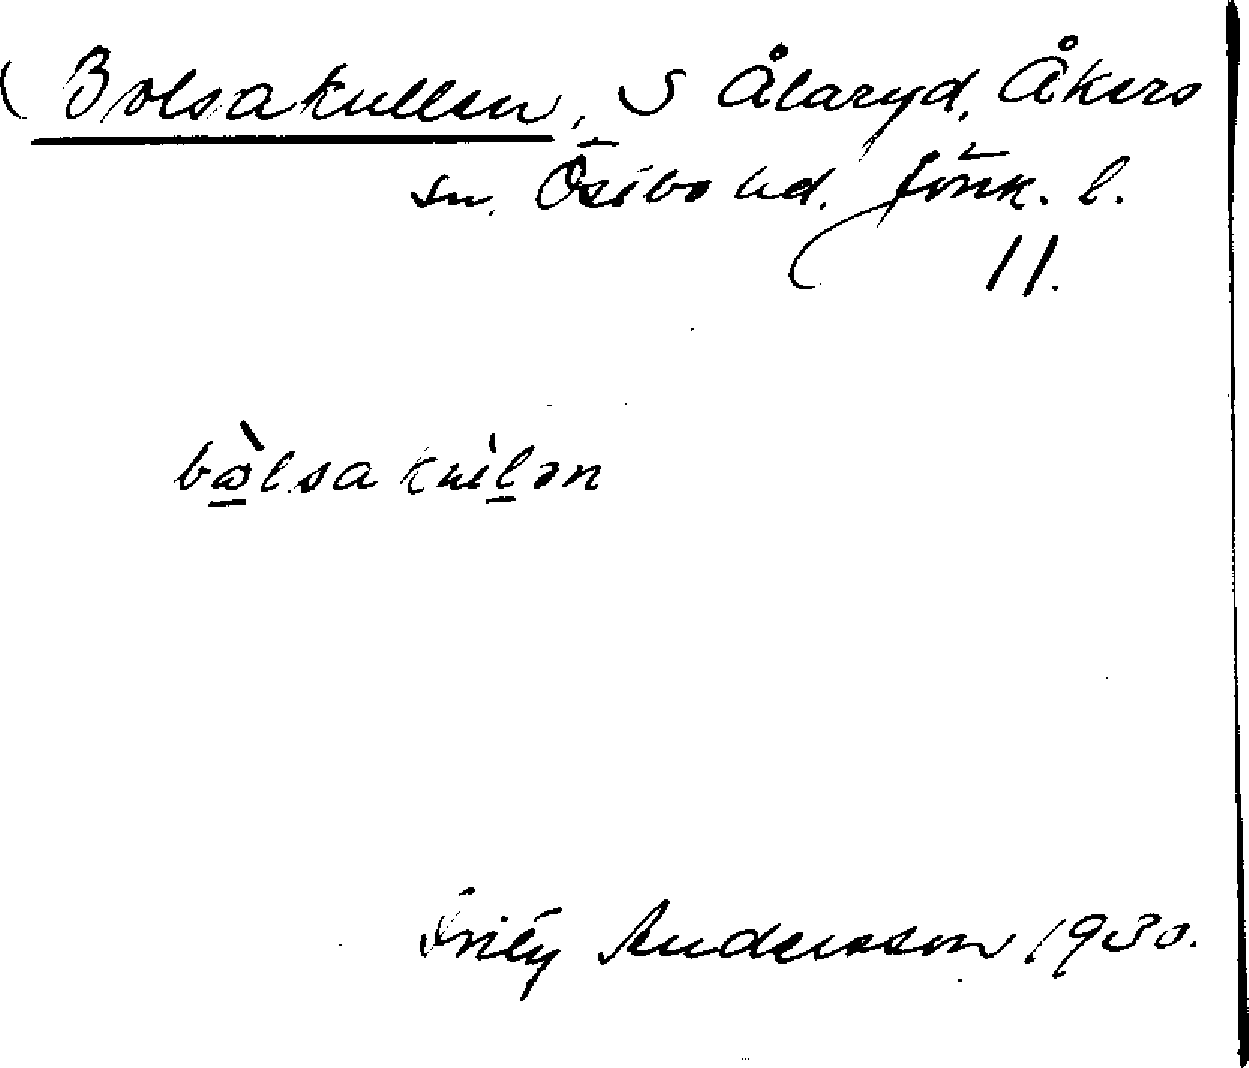 (Bolsakullen, S Ålaryd, Åkers
sn. Östbo hd. Jönk. l.
11.
bòlsakulən
Fritz Andersson 1930.